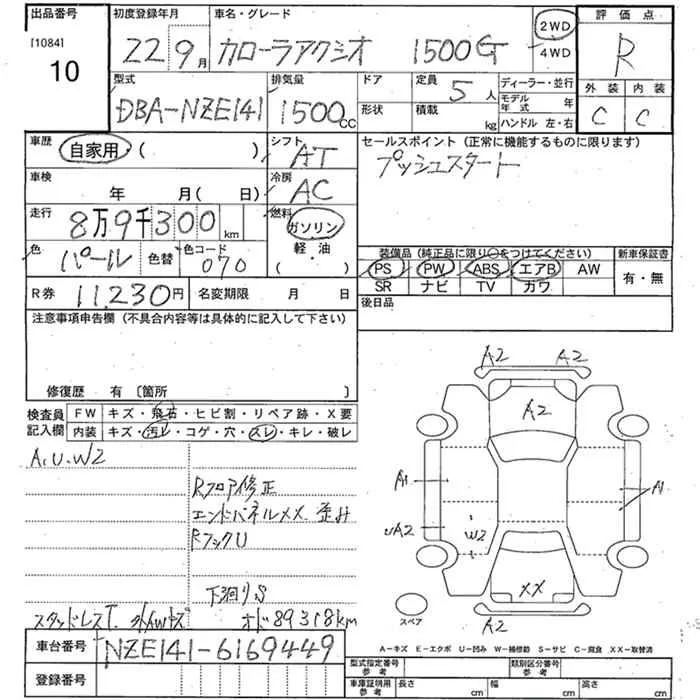 出品番号
[1084]
10
初度登録年月
22 9月
車名・グレード
カローラアクシオ 1500G
2WD
4WD
評価点
R
外装 内装
C C
型式
DBA-NZE141
排気量
1500CC
ドア
形状
定員
5人
積載
kg
ディーラー・並行
モデル年式 年
ハンドル 左・右
車歴
自家用 ( )
シフト
AT
セールスポイント (正常に機能するものに限ります)
プッシュスタート
車検
年 月( 日)
冷房
AC
走行
8万9千300km
燃料
ガソリン
軽・油
( )
色
パール
色替
色コード
070
装備品 (純正品に限り○をつけてください)
新車保証書
PS PW ABS エアB AW
SR ナビ TV カワ
有・無
R券 11,230円
名変期限 月 日
後日品
注意事項申告欄 (不具合内容等は具体的に記入して下さい)
修復歴 有 〔箇所 〕
検査員記入欄
FW キズ・飛石・ヒビ割・リペア跡・X要
内装 キズ・汚レ・コゲ・穴・スレ・キレ・破レ
A.U.W2
Rフロア修正
エンドパネルXX.歪み
RフックU
下廻りS
スタッドレスT. 外AWキズ オド89318km
A2 A2
A2
A1 A1
UA2 W2
XX
スペア
A2
A-キズ E-エクボ U-凹み W-補修跡 S-サビ C-腐食 XX-取替済
車台番号 NZE141-6169449
登録番号
型式指定番号 参考
類別区分番号 参考
車庫証明用 参考
長さ cm
幅 cm
高さ cm